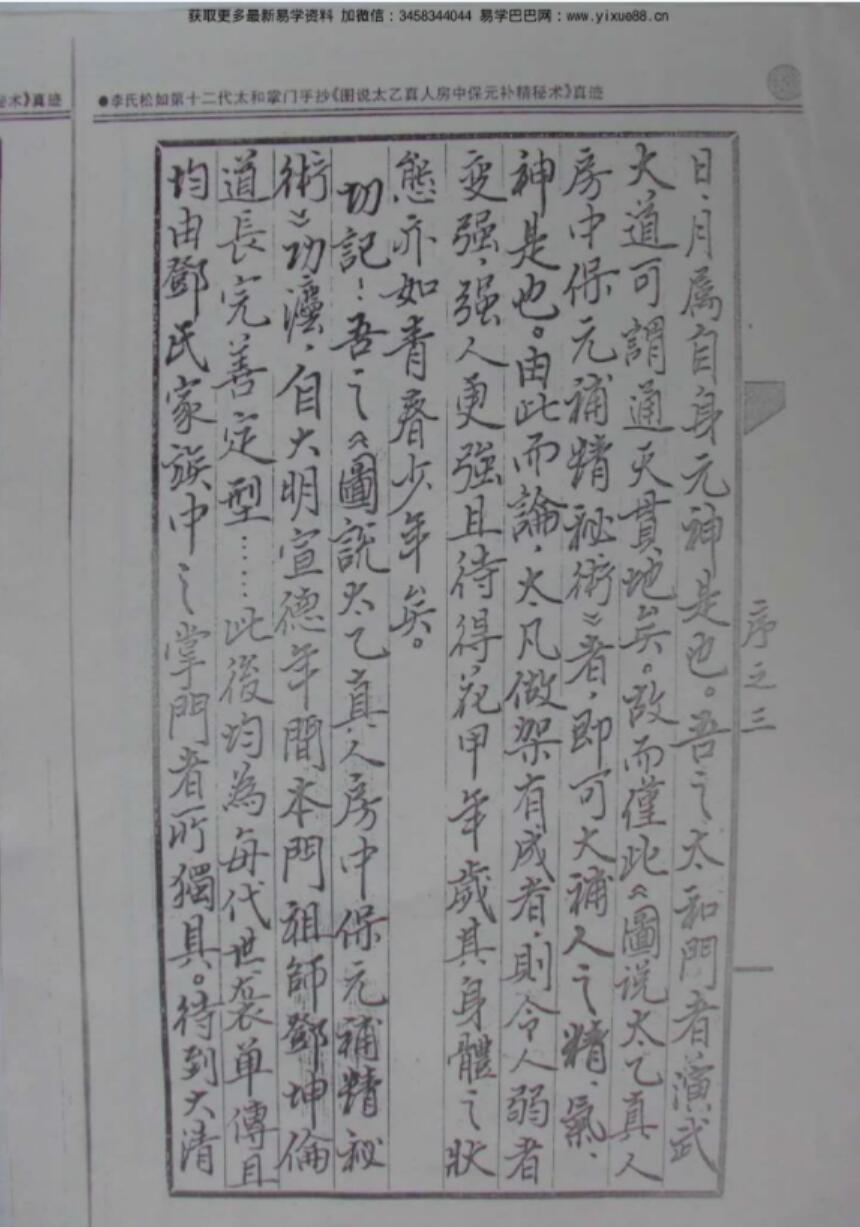 获取更多最新易学资料 加微信：3458344044 易学巴巴网：www.yixue88.cn
术》真迹
●李氏松如第十二代太和掌门手抄《图说太乙真人房中保元补精秘术》真迹
序之三
日、月属自身元神是也。吾之太和門者演武
大道可謂通天貫地矣。故而僅此《圖说太乙真人
房中保元補精秘術》者，即可大補人之精、氣、
神是也。由此而論，大凡做架有成者，則令人弱者
变强，强人更強且待得花甲年歲其身體之狀
態亦如青春少年矣。
切記！吾之《圖説太乙真人房中保元補精秘
術》功灋，自大明宣德年間本門祖師鄧坤倫
道長完善定型……此後均為每代世袭单傳且
均由鄧氏家族中之掌門者所獨具。待到大清